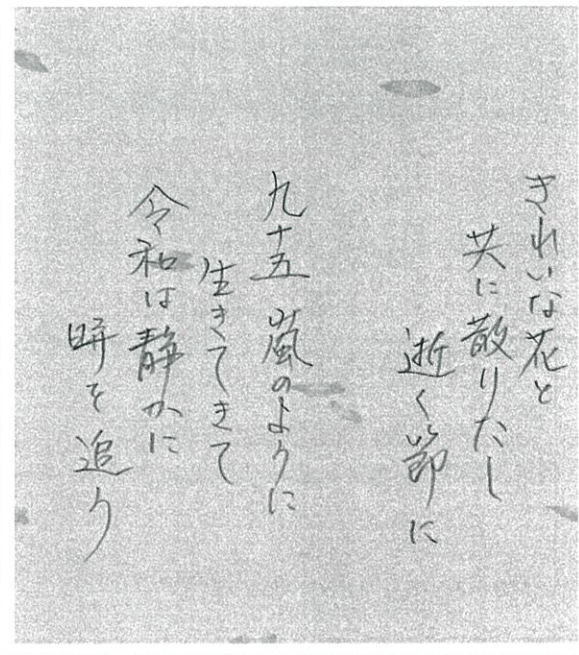 きれいな花と
共に散りたし
逝く節に
九十五 嵐のように
生きてきて
令和は静かに
時を追う